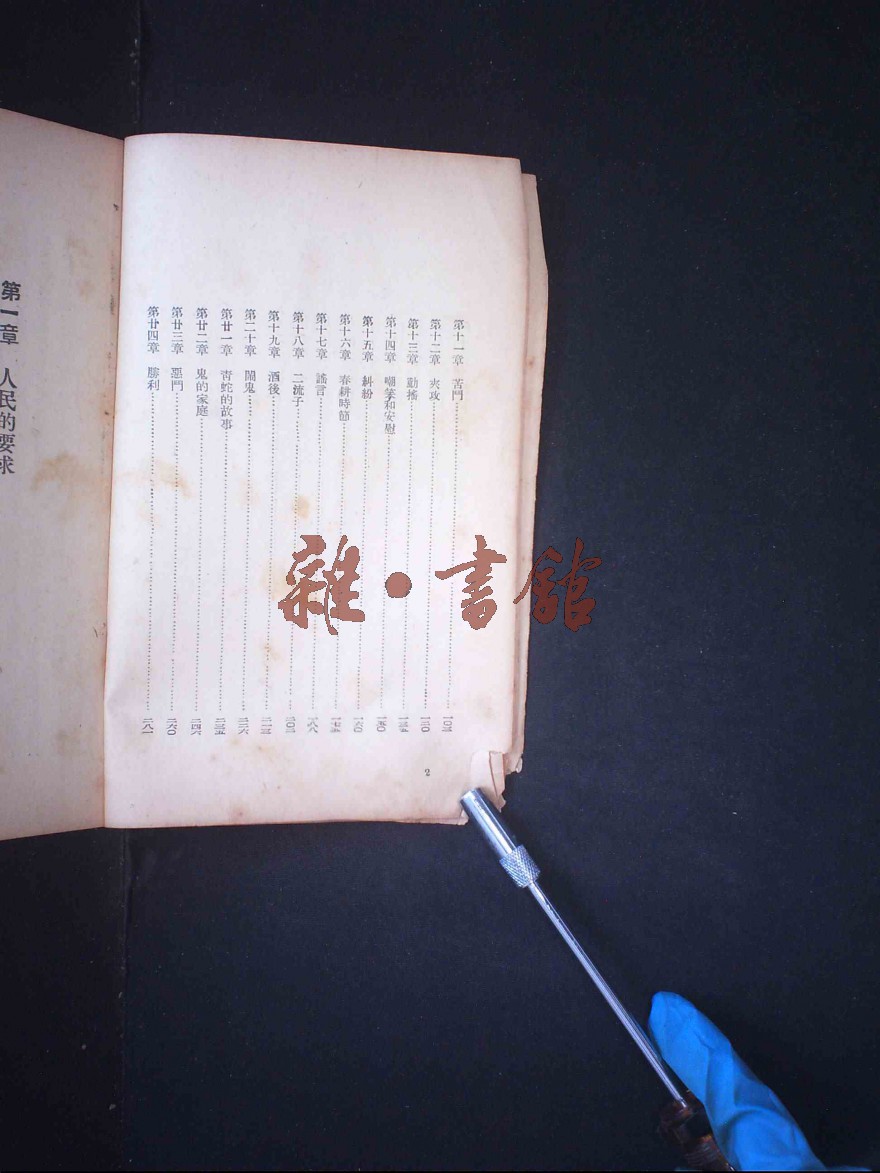 第十一章 苦鬥……一〇三
第十二章 夾攻……一二〇
第十三章 動搖……一三五
第十四章 嘲笑和安慰……一五〇
第十五章 糾紛……一六〇
第十六章 春耕時節……一七五
第十七章 謠言……一八八
第十八章 二流子……二〇二
第十九章 酒後……二一三
第二十章 鬧鬼……二二六
第廿一章 靑蛇的故事……二三五
第廿二章 鬼的家庭……二四六
第廿三章 惡鬥……二六〇
第廿四章 勝利……二八一
2
第一章 人民的要求
雜·書館